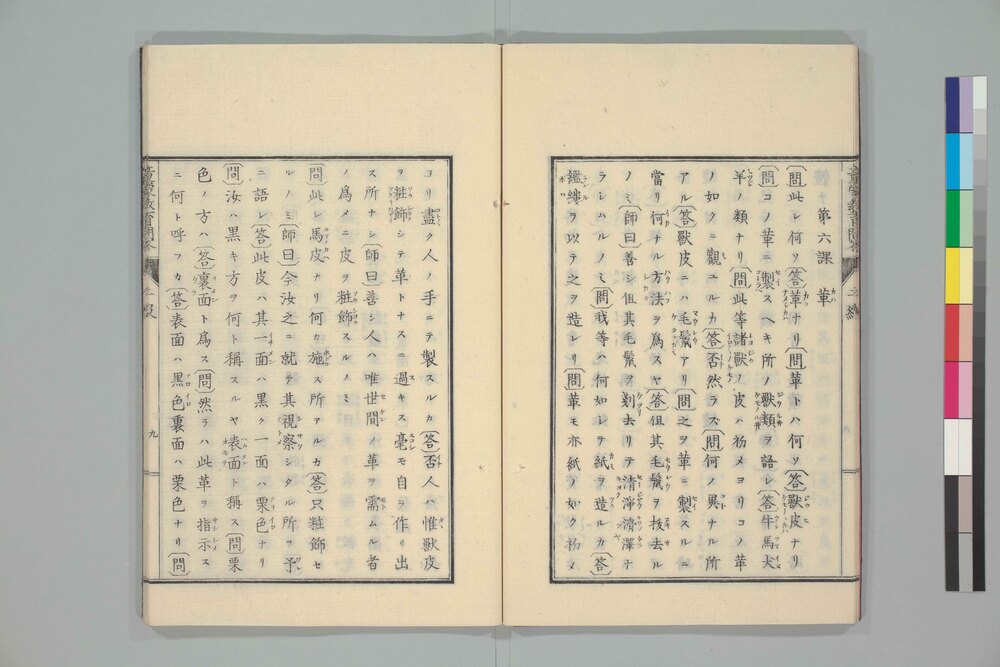 第六課　革
〔問〕此レ何ソ〔答〕革ナリ〔問〕革トハ何ソ〔答〕獸皮ナリ
〔問〕コノ革ニ製スヘキ所ノ獸類ヲ語レ〔答〕牛馬犬
羊ノ類ナリ〔問〕此等諸獸ノ皮ハ初メヨリコノ革
ノ如クニ觀ユルカ〔答〕否然ラス〔問〕何ノ異ナル所
アル〔答〕獸皮ニハ毛鬣アリ〔問〕之ヲ革ニ製スルニ
當リ何ナル方法ヲ爲スヤ〔答〕但其毛鬣ヲ拔去ル
ノミ〔師曰〕善シ但其毛鬣ヲ剃去リテ清淨滑澤ナ
ラシムルノミ〔問〕我等ハ何如シテ紙ヲ造ルカ〔答〕
繿縷ヲ以テ之ヲ造レリ〔問〕革モ亦紙ノ如ク初メ
ヨリ盡ク人ノ手ニテ製スルカ〔答〕否人ハ惟獸皮
ヲ粧飾シテ革トナスニ過キス毫モ自ラ作リ出
ス所ナシ〔師曰〕善シ人ハ唯世間ノ革ヲ需ムル者
ノ爲メニ皮ヲ粧飾スルノミ
〔問〕此レ馬皮ナリ何カ施ス所アルカ〔答〕只粧飾セ
ルノミ〔師曰〕今汝之ニ就テ其視察シタル所ヲ予
ニ語レ〔答〕此皮ハ其一面ハ黒ク一面ハ栗色ナリ
〔問〕汝ハ黒キ方ヲ何ト稱スルヤ〔答〕表面ト稱ス〔問〕栗
色ノ方ハ〔答〕裏面ト爲ス〔問〕然ラハ此革ヲ指示ス
ニ何ト呼フカ〔答〕表面ハ黒色裏面ハ栗色ナリ〔問〕
九